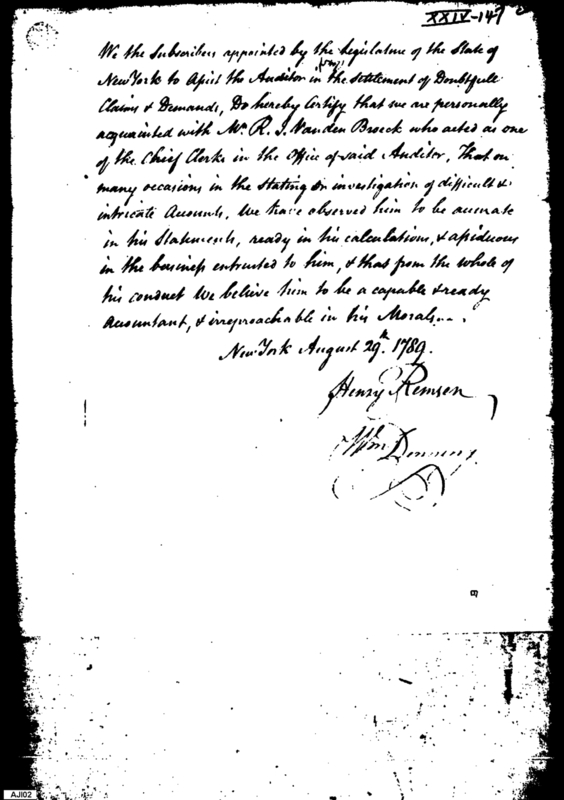 XXIV-147
We the Subscribers appointed by the Legislature of the State of
New York to Assist the Auditor in the settlement of Doubtfull
Claims & Demands, Do hereby Certify that we are personally
acquainted with Mr. R. J. Vanden Broeck who acted as one
of the Chief Clerks in the Office of said Auditor, That on
many occasions in the Stating & investigation of difficult &
intricate Accounts, We have observed him to be accurate
in his Statements, ready in his calculations, & assiduous
in the business entrusted to him, & that from the whole of
his conduct We believe him to be a capable & ready
Accountant, & irreproachable in his Morals...
New York August 29th. 1789.
Henry Remsen
Wm Denning
AJI02